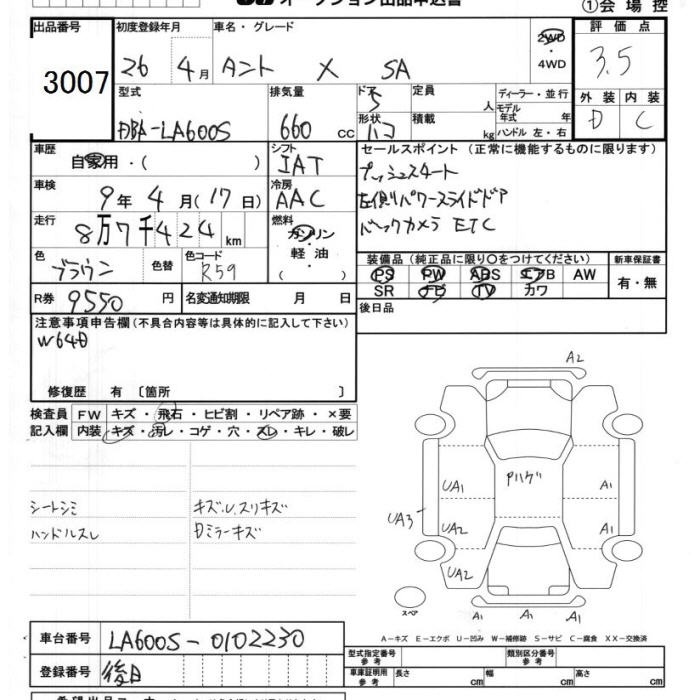 ①会場控
出品番号
3007
初度登録年月
26 4月
車名・グレード
タント X SA
2WD
・
4WD
評価点
3.5
外装 内装
D C
型式
DBA-LA600S
排気量
660 cc
ドア
5
形状
ハコ
定員
人
積載
kg
ディーラー・並行
モデル年式 年
ハンドル 左・右
車歴
自家用・( )
シフト
IAT
セールスポイント (正常に機能するものに限ります)
プッシュスタート
左側パワースライドドア
バックカメラ ETC
車検
9年 4月 (17日)
冷房
AAC
走行
8万7千424km
燃料
ガソリン
軽油
( )
色
ブラウン
色替
色コード
R59
装備品 (純正品に限り〇をつけてください)
PS PW ABS エアB AW
SR ナビ TV カワ
新車保証書
有・無
R券 9550円
名変通知期限 月 日
後日品
注意事項申告欄(不具合内容等は具体的に記入して下さい)
W640
修復歴 有〔箇所 〕
検査員
記入欄
FW キズ・飛石・ヒビ割・リペア跡・×要
内装 キズ・汚レ・コゲ・穴・スレ・キレ・破レ
シートシミ
ハンドルスレ
キズ.U.スリキズ
Dミラーキズ
A2
Pハゲ
UA1
A1
UA3
UA2
A1
UA2
A1
A1
A1
スペア
A−キズ E−エクボ U−凹み W−補修跡 S−サビ C−腐食 XX−交換済
車台番号
LA600S-0102230
登録番号
後日
型式指定番号
参考
類別区分番号
参考
車庫証明用
参考
長さ cm
幅 cm
高さ cm